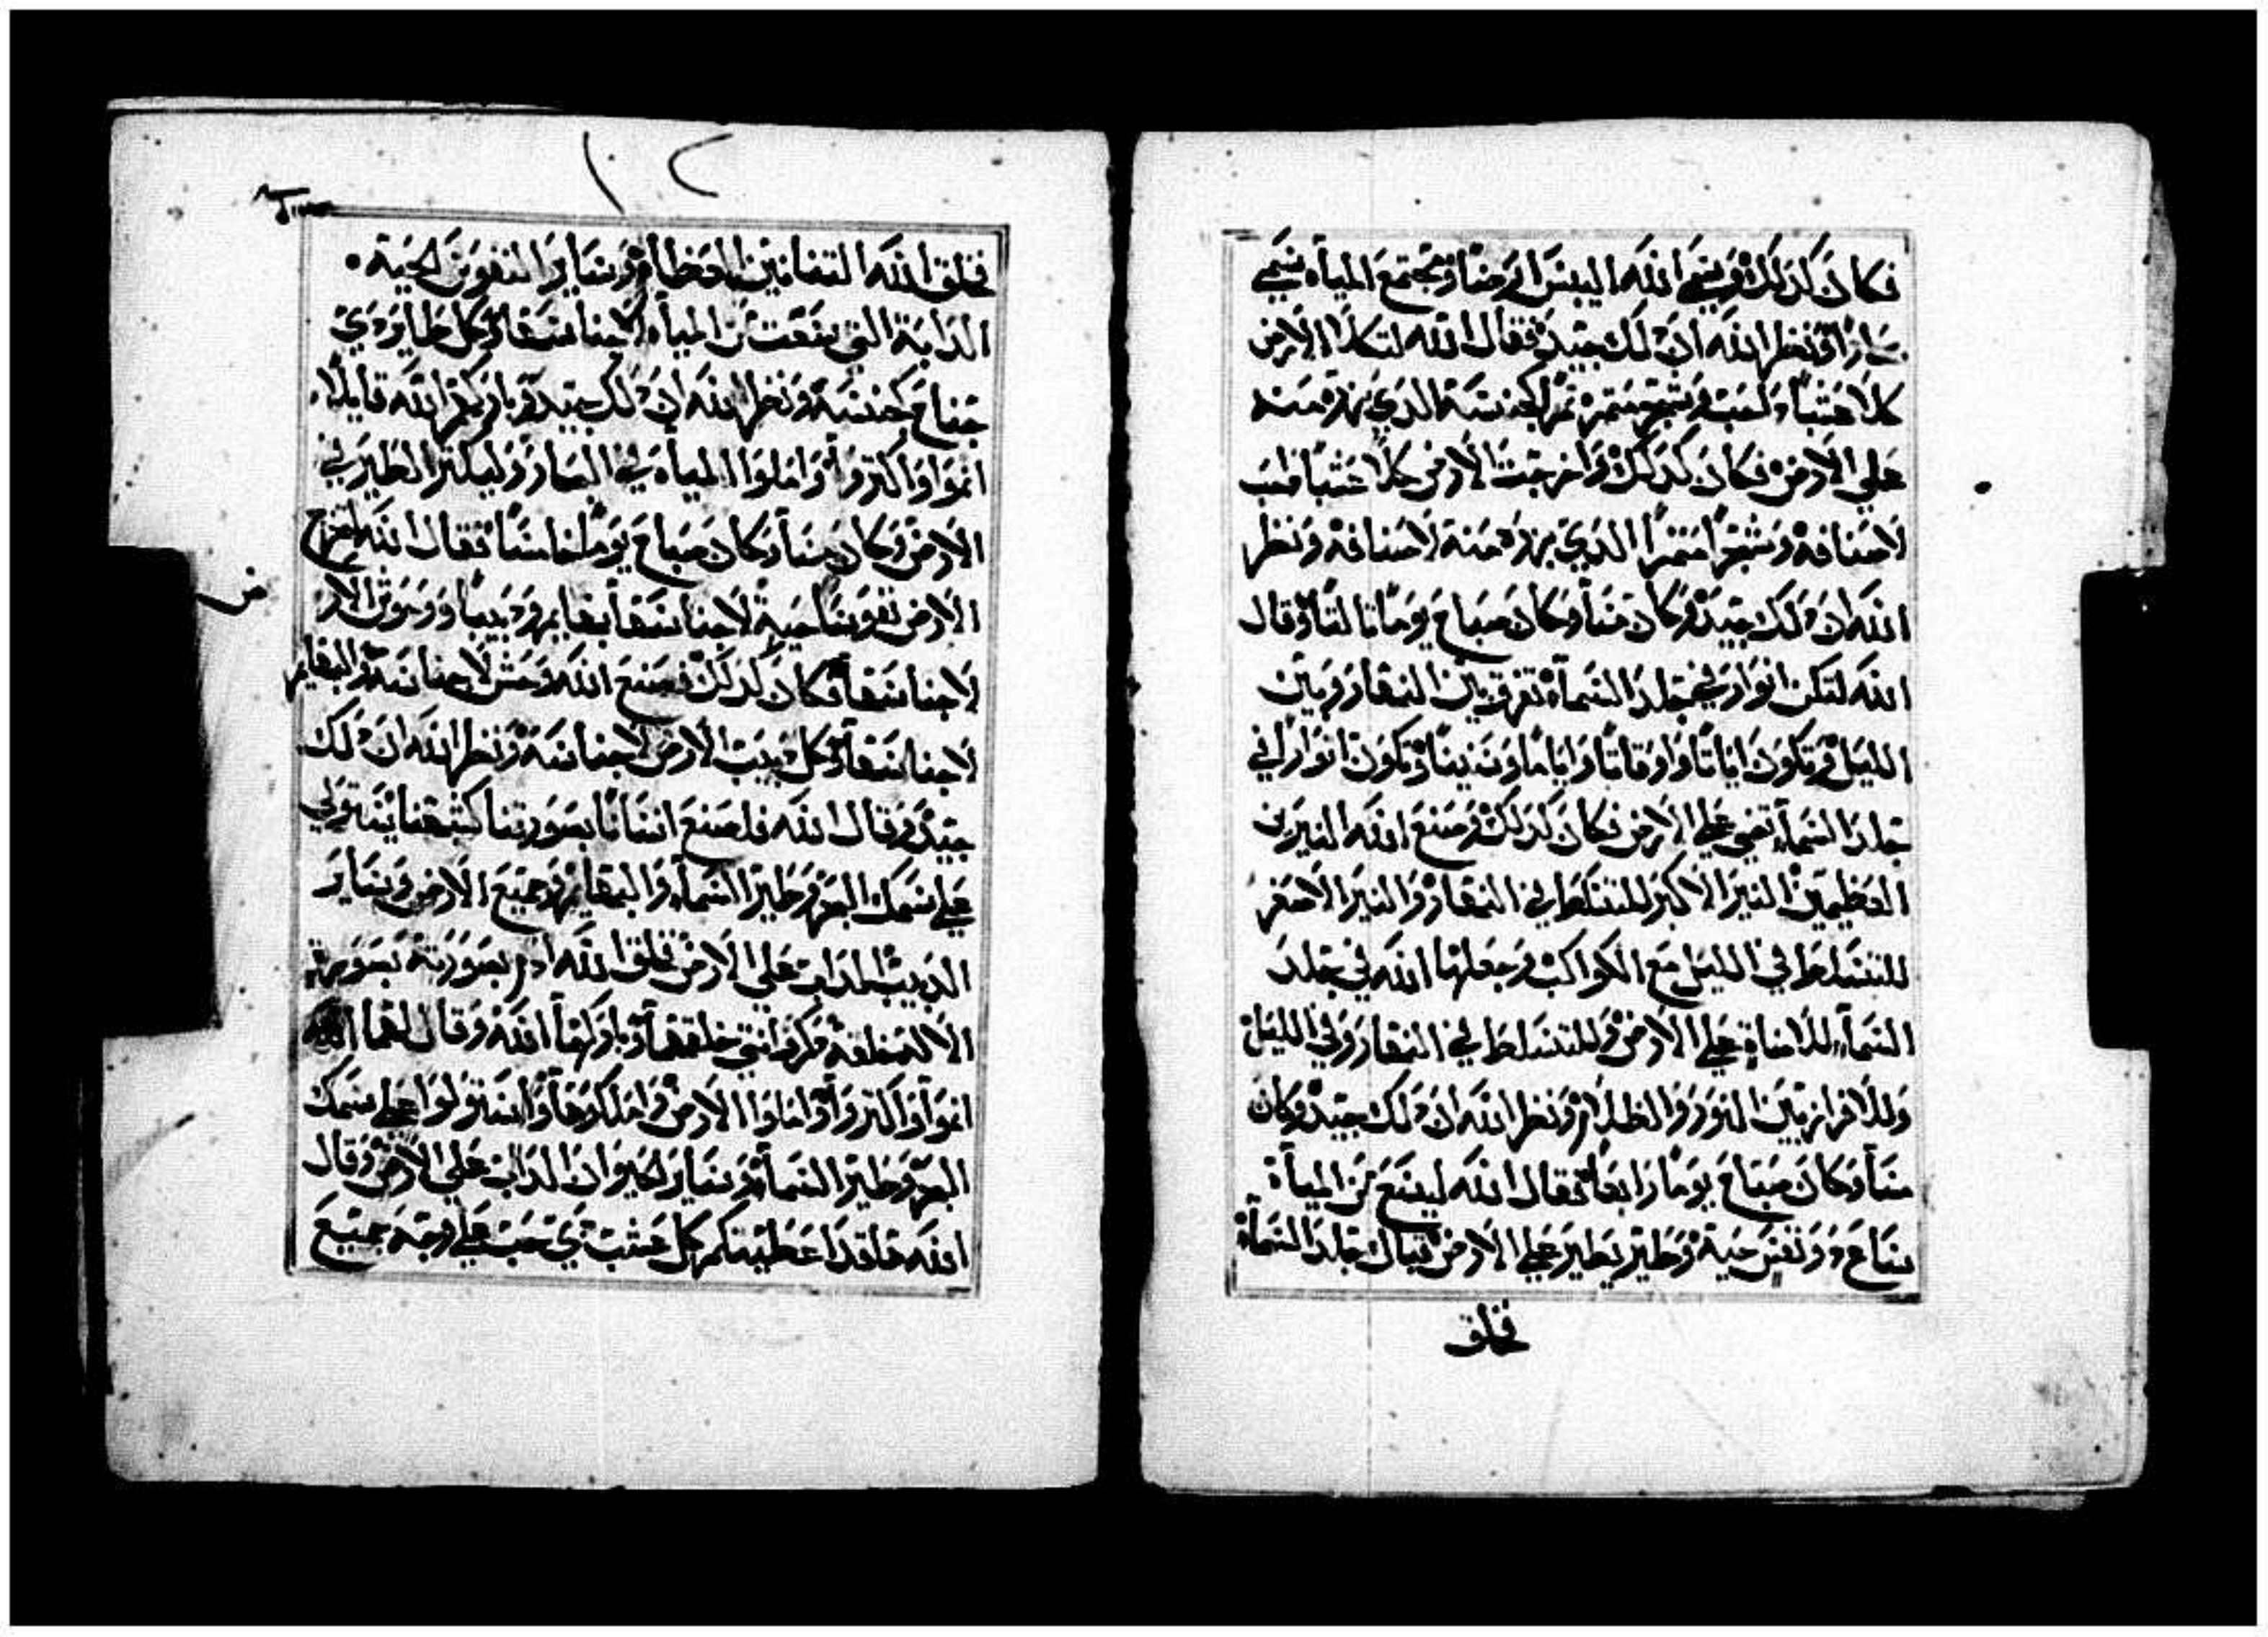 فكان كذلك وسمى الله اليبس ارضا ومجتمع المياه سمي
بحارا ونظر الله ان ذلك جيد فقال الله لتكلا الارض
كلا عشبا ذا حب وشجر مثمر ثمرا لجنسه الذي بزره منه
علي الارض فكان كذلك واخرجت الارض كلا عشبا ذا حب
لاصنافه وشجرا مثمرا الذي بزره منه لاصنافه ونظر
الله ان ذلك جيد وكان مسأ وكان صباح يوما ثالثا وقال
الله لتكن انوار في جلد السمآ تفرق بين النهار وبين
الليل وتكون اياتا واوقاتا واياما وسنينا وتكون انوارا في
جلد السمآ تضي علي الارض فكان كذلك وصنع الله النيرين
العظيمين النير الاكبر للتسلط في النهار والنير الاصغر
للتسلط في الليل مع الكواكب وجعلها الله في جلد
السمآ للاضاة علي الارض وللتسلط في النهار وفي الليل
وللافراز بين النور والظلام ونظر الله ان ذلك جيد وكان
مسأ وكان صباح يوما رابعا فقال الله ليسع من المياه
ساع ذو نفس حية وطير يطير علي الارض قبال جلد السمآ
فخلق
١٢
فخلق الله التنانين العظام وساير النفوس الحية
الدابة التي سعت من المياه لاجناسها وكل طاير ذي
جناح لجنسه ونظر الله ان ذلك جيد وباركهم الله قايلا
انموا واكثروا واملوا المياه في البحار وليكثر الطير في
الارض وكان مسأ وكان صباح يوما خامسا فقال الله لتخرج
الارض نفوسا حية لاجناسها بهايم ودبيبا ووحوش الار
ض
لاجناسها فكان كذلك فصنع الله وحش لاجناسه والبهايم
لاجناسها وكل دبيب الارض لاجناسه ونظر الله ان ذلك
جيد وقال الله فلنصنع انسانا بصورتنا كشبهنا يستولي
علي سمك البحر وطير السمآ والبهايم وجميع الارض وساير
الدبيب الداب علي الارض فخلق الله ادم بصورته بصورة
الاله خلقه ذكر وانثي خلقهمآ وباركهمآ الله وقال لهما الله
انموا واكثروا واملوا الارض واملكوها واستولوا علي سمك
البحر وطير السمآ وساير الحيوان الداب علي الارض وقال
الله هاقد اعطيتكم كل عشب ذي حب علي وجه جميع